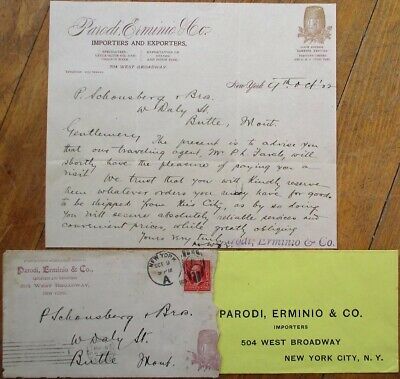 Parodi, Erminio & Co.
IMPORTERS AND EXPORTERS,
504 WEST BROADWAY
New York 9th Oct
P. Schonsberg & Bro.
W Daly St.
Butte, Mont.
Gentlemen, The present is to advise you
that our traveling agent, Mr. P. L. will
shortly have the pleasure of paying you a
visit.
We trust that you will kindly reserve
him whatever orders you may have for goods
to be shipped from this City, as by so doing
you will secure absolutely reliable services and
convenient prices, while greatly obliging
Yours Very Truly
Parodi, Erminio & Co.
Parodi, Erminio & Co.,
504 WEST BROADWAY,
NEW YORK.
NEW YORK
OCT
A
P. Schonsberg & Bro.
W Daly St.
Butte
Mont.
PARODI, ERMINIO & CO.
IMPORTERS
504 WEST BROADWAY
NEW YORK CITY, N. Y.